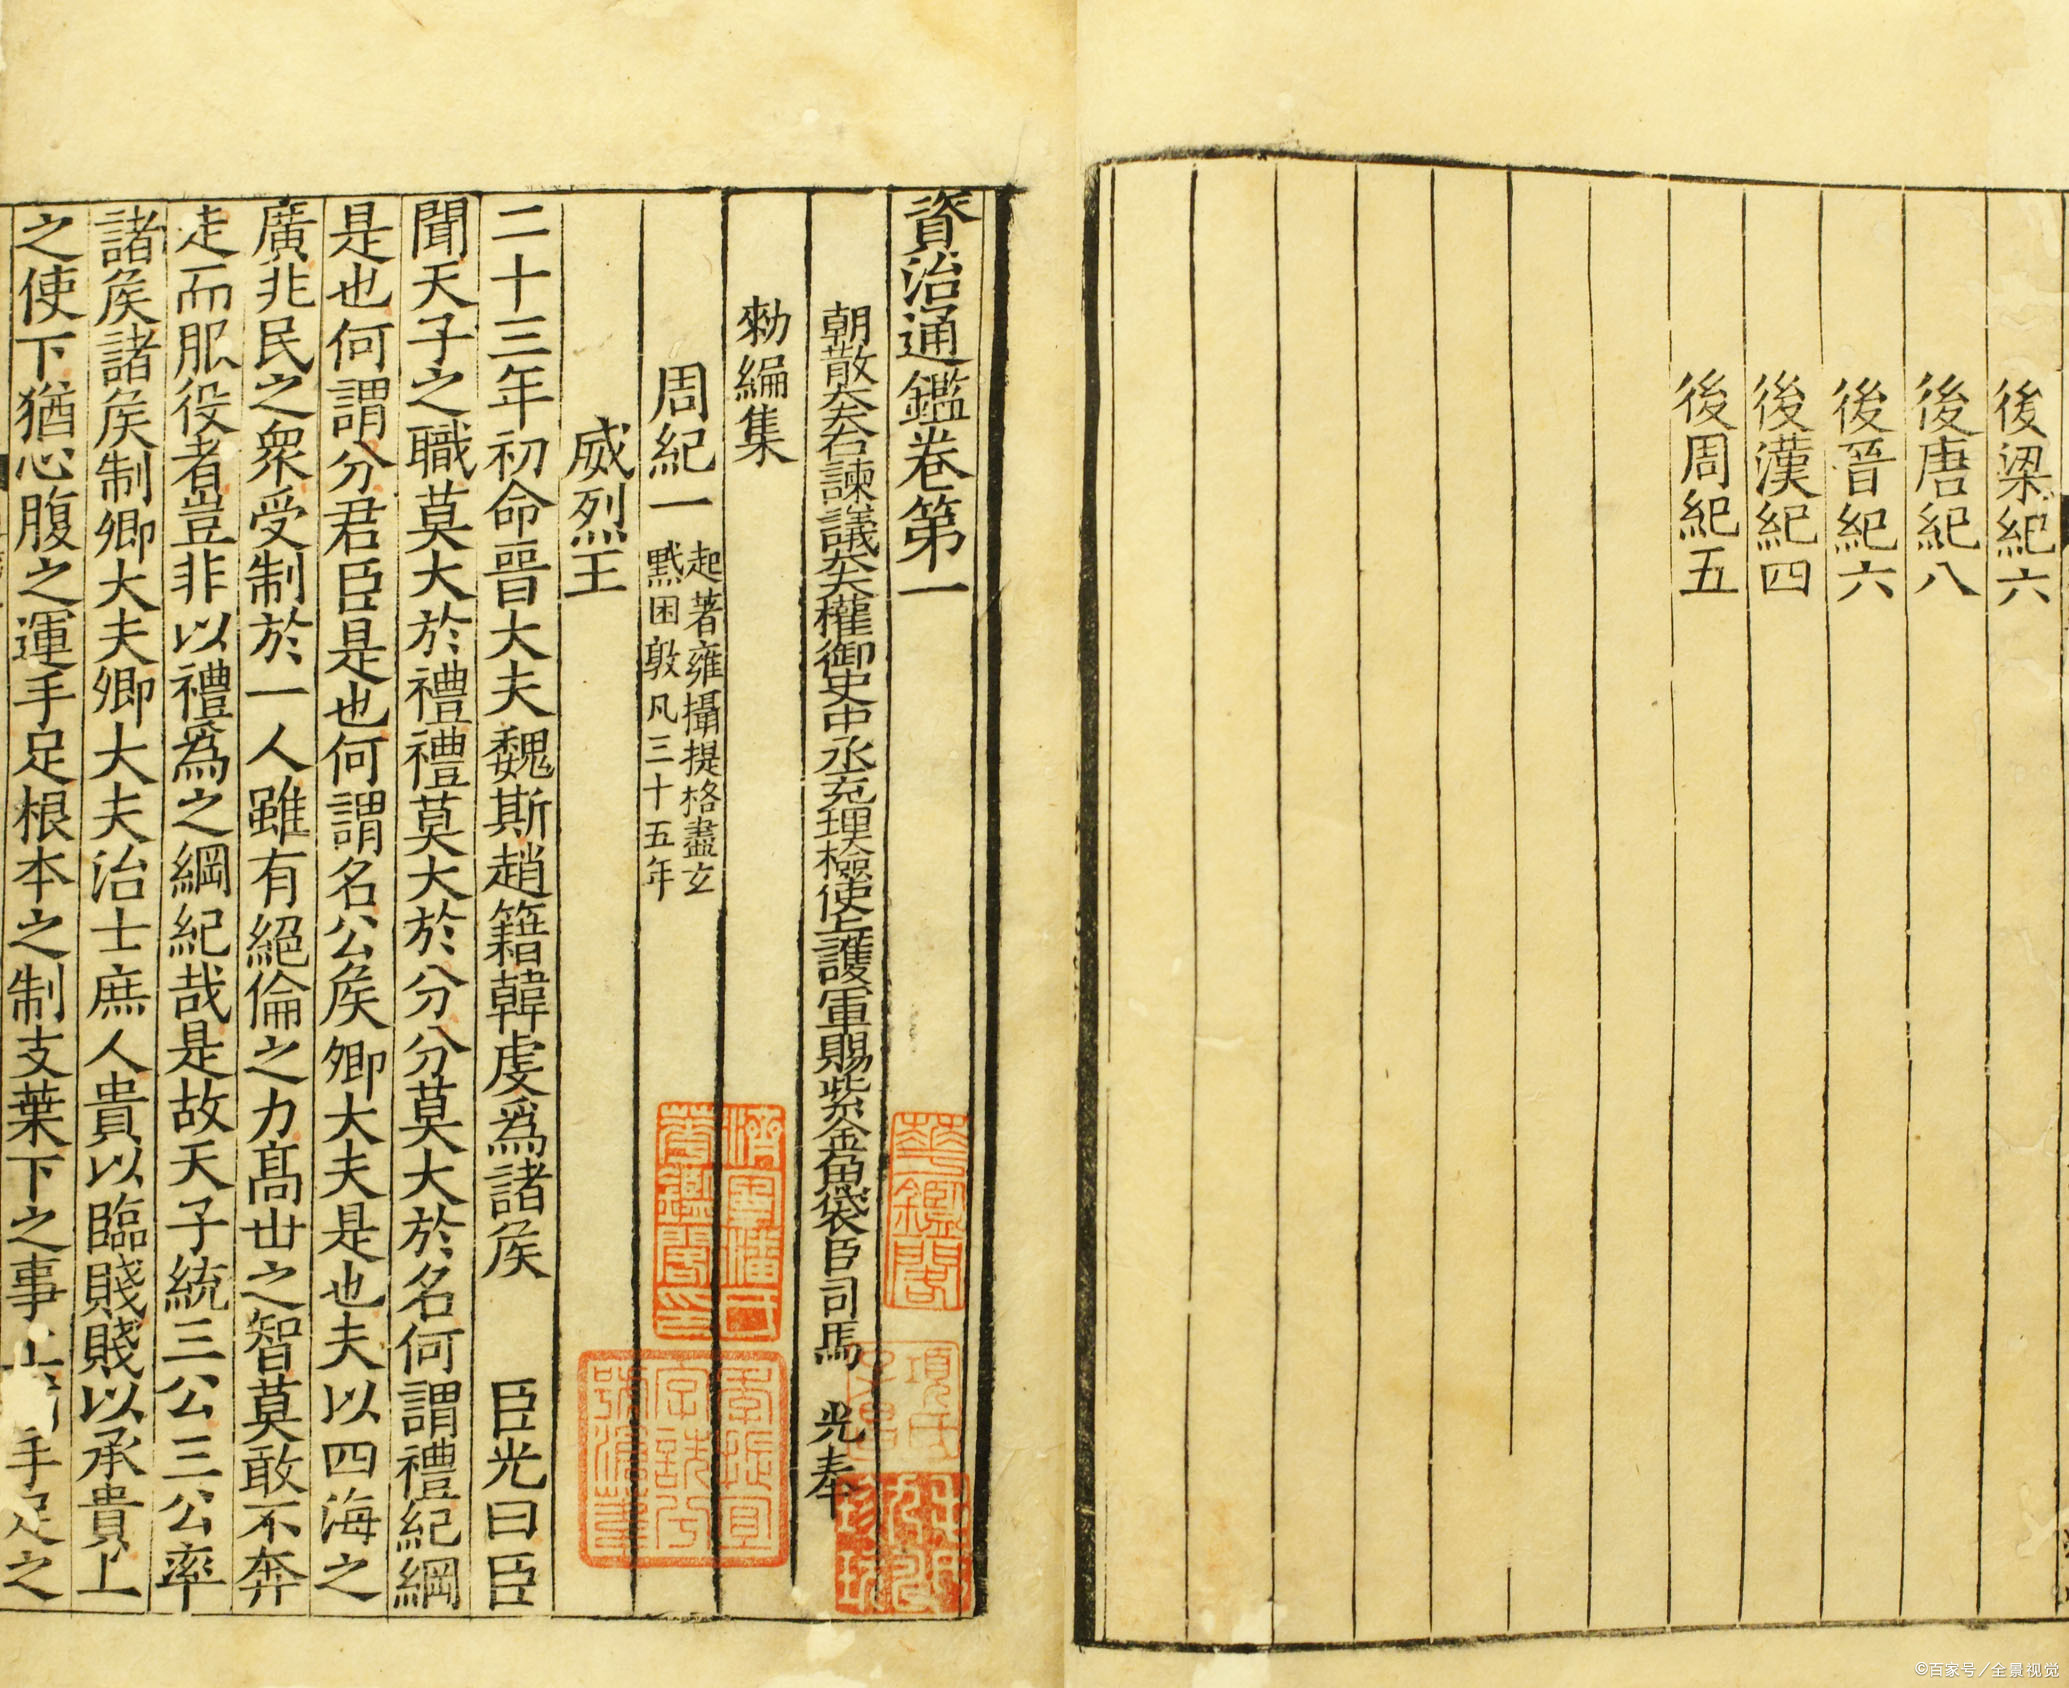 後梁紀六
後唐紀八
後晉紀六
後漢紀四
後周紀五
資治通鑑卷第一
朝散大夫右諫議大夫權御史中丞充理檢使上護軍賜紫金魚袋臣司馬 光奉
勑編集
周紀一
起著雍攝提格盡玄
黓困敦凡三十五年
威烈王
二十三年初命晉大夫魏斯趙籍韓虔爲諸矦 臣光曰臣
聞天子之職莫大於禮禮莫大於分分莫大於名何謂禮紀綱
是也何謂分君臣是也何謂名公矦卿大夫是也夫以四海之
廣兆民之衆受制於一人雖有絕倫之力髙世之智莫敢不奔
走而服役者豈非以禮爲之綱紀哉是故天子統三公三公率
諸矦諸矦制卿大夫卿大夫治士庶人貴以臨賤賤以承貴上
之使下猶心腹之運手足根本之制支葉下之事上 手足之
華鑑閣
項氏
©百家号/全景视觉